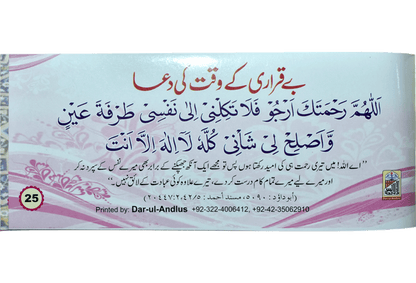 بے قراری کے وقت کی دعا
اَللّٰهُمَّ رَحْمَتَكَ اَرْجُوْ فَلَا تَكِلْنِیْ اِلٰی نَفْسِیْ طَرْفَةَ عَیْنٍ
وَّاَصْلِحْ لِیْ شَأْنِیْ كُلَّهٗ لَا اِلٰهَ اِلَّا اَنْتَ
”اے اللہ! میں تیری رحمت ہی کی امید رکھتا ہوں پس تو مجھے ایک آنکھ جھپکنے کے برابر بھی میرے نفس کے سپرد نہ کر
اور میرے لیے میرے تمام کام درست کر دے، تیرے علاوہ کوئی عبادت کے لائق نہیں۔“
(ابوداؤد: ٥٠٩٠، مسند احمد: ٤٢/٥، ٢٠٤٤٧)
25
Printed by: Dar-ul-Andlus +92-322-4006412, +92-42-35062910